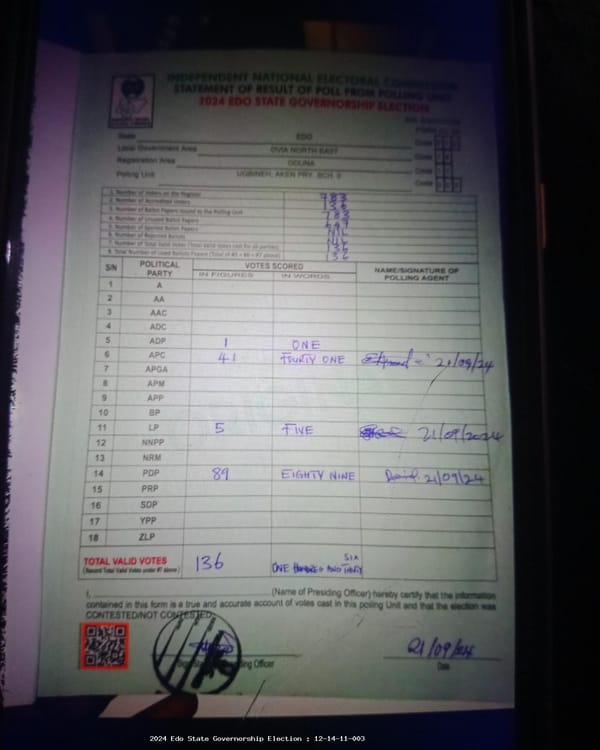 INDEPENDENT NATIONAL ELECTORAL COMMISSION
STATEMENT OF RESULT OF POLL FROM POLLING UNIT
2024 EDO STATE GOVERNORSHIP ELECTION
State EDO Code
Local Government Area OVIA NORTH EAST Code
Registration Area ODUNA Code
Polling Unit UGBINEH, AKEN PRY. SCH. II Code
1. Number of Voters on the Register 783
2. Number of Accredited Voters 136
3. Number of Ballot Papers Issued to the Polling Unit 783
4. Number of Unused Ballot Papers
5. Number of Spoiled Ballot Papers NIL
6. Number of Rejected Ballots NIL
7. Number of Total Valid Votes (Total valid votes cast for all parties) 136
8. Total Number of Used Ballots Papers (Total of #5 + #6 + #7 above) 136
S/N POLITICAL PARTY VOTES SCORED NAME/SIGNATURE OF POLLING AGENT
IN FIGURES IN WORDS
1 A
2 AA
3 AAC
4 ADC
5 ADP 1 ONE
6 APC 41 FOURTY ONE 21/09/24
7 APGA
8 APM
9 APP
10 BP
11 LP 5 FIVE 21/09/2024
12 NNPP
13 NRM
14 PDP 89 EIGHTY NINE 21/09/24
15 PRP
16 SDP
17 YPP
18 ZLP
TOTAL VALID VOTES 136 ONE HUNDRED AND THIRTY SIX
(Record Total Valid Votes under #7 above)
I, (Name of Presiding Officer) hereby certify that the information
contained in this form is a true and accurate account of votes cast in this polling Unit and that the election was
CONTESTED/NOT CONTESTED.
21/09/24
Officer Date
2024 Edo State Governorship Election : 12-14-11-003